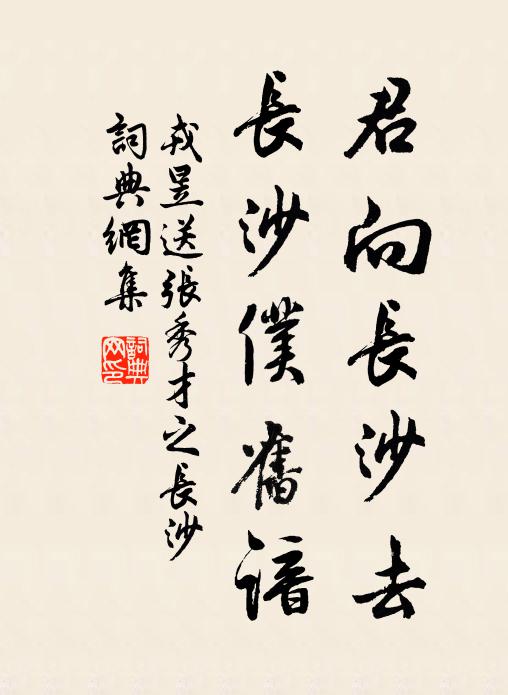 君向長沙去
長沙僕舊諳
戎昱送張秀才之長沙
詞典網集
詞典網印